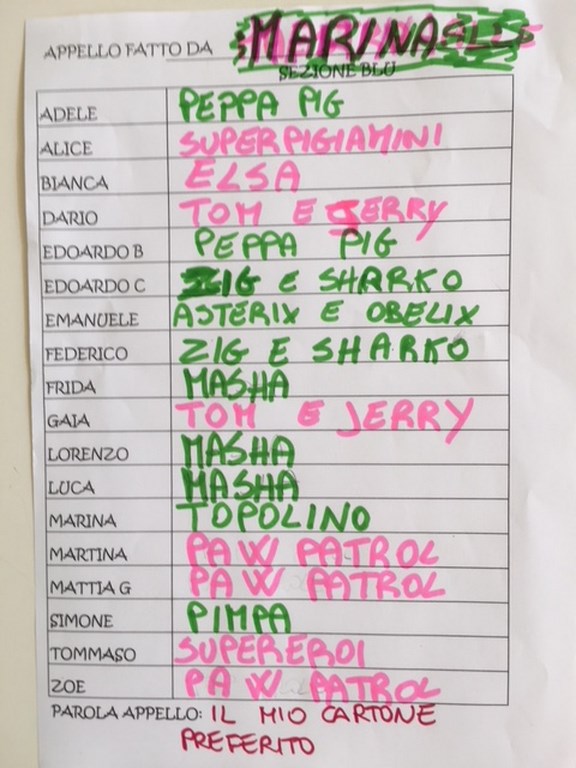 APPELLO FATTO DA MARINA
SEZIONE BLU
ADELE PEPPA PIG
ALICE SUPERPIGIAMINI
BIANCA ELSA
DARIO TOM E JERRY
EDOARDO B PEPPA PIG
EDOARDO C ZIG E SHARKO
EMANUELE ASTERIX E OBELIX
FEDERICO ZIG E SHARKO
FRIDA MASHA
GAIA TOM E JERRY
LORENZO MASHA
LUCA MASHA
MARINA TOPOLINO
MARTINA PAW PATROL
MATTIA G PAW PATROL
SIMONE PIMPA
TOMMASO SUPEREROI
ZOE PAW PATROL
PAROLA APPELLO: IL MIO CARTONE
PREFERITO